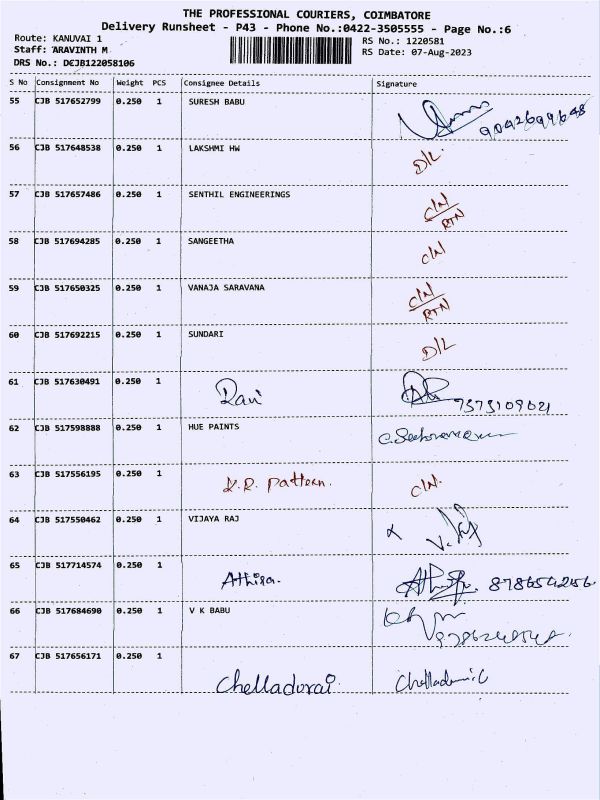 THE PROFESSIONAL COURIERS, COIMBATORE
Delivery Runsheet - P43 - Phone No.:0422-3505555 - Page No.:6
Route: KANUVAI 1 RS No.: 1220581
Staff: ARAVINTH M RS Date: 07-Aug-2023
DRS No.: DCJB122058106
S No Consignment No Weight PCS Consignee Details Signature
55 CJB 517652799 0.250 1 SURESH BABU
9042699648
56 CJB 517648538 0.250 1 LAKSHMI HW D/L
57 CJB 517657486 0.250 1 SENTHIL ENGINEERINGS C/N
RTN
58 CJB 517694285 0.250 1 SANGEETHA C/N
59 CJB 517650325 0.250 1 VANAJA SARAVANA C/N
RTN
60 CJB 517692215 0.250 1 SUNDARI D/L
61 CJB 517630491 0.250 1 Ravi
7373109021
62 CJB 517598888 0.250 1 HUE PAINTS
63 CJB 517556195 0.250 1 K.R. Pattern. C/N.
64 CJB 517550462 0.250 1 VIJAYA RAJ
65 CJB 517714574 0.250 1 Athira. 8786542256.
66 CJB 517684690 0.250 1 V K BABU
67 CJB 517656171 0.250 1 Chelladurai.